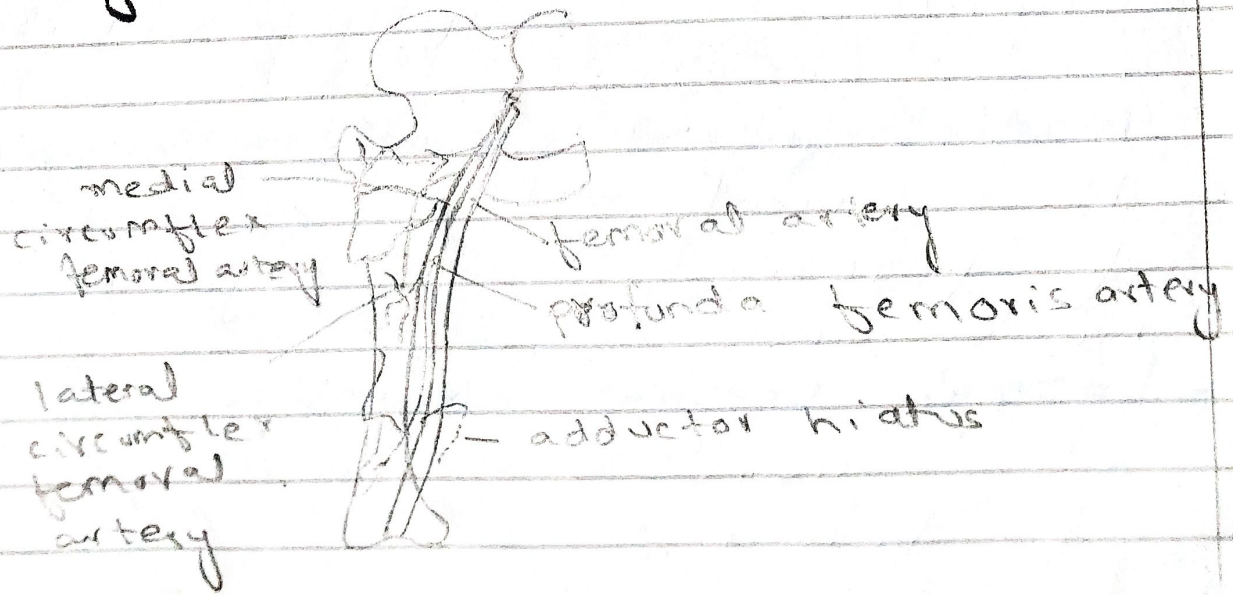 medial
circumflex
femoral artery
femoral artery
profunda femoris artery
lateral
circumflex
femoral
artery
adductor hiatus